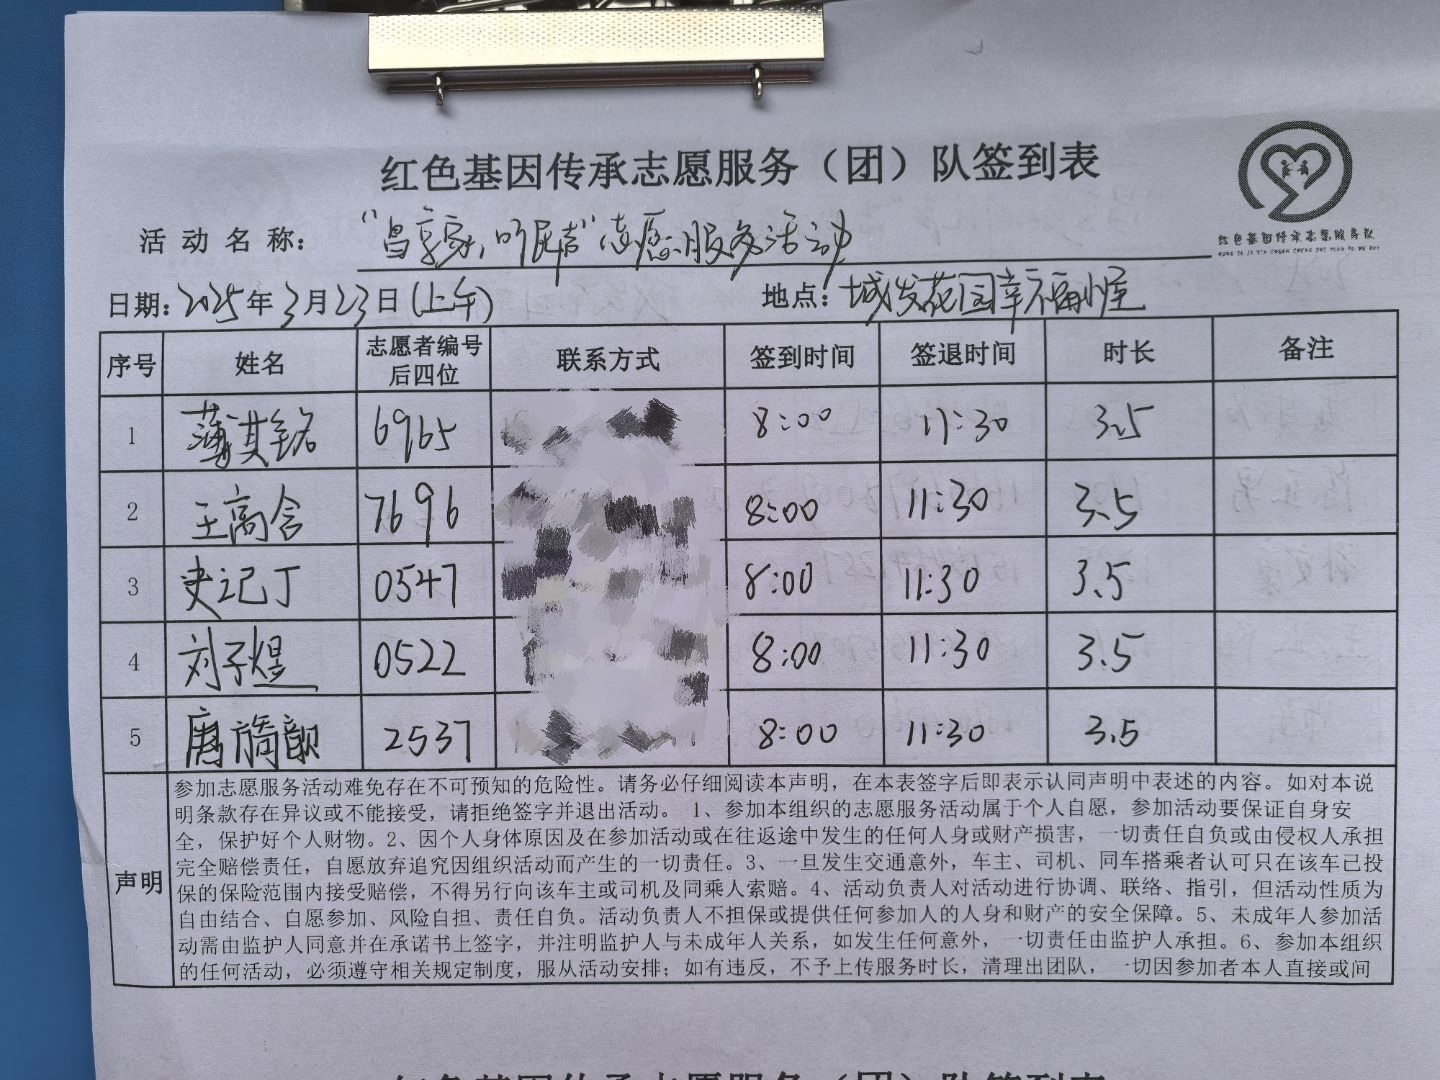 红色基因传承志愿服务（团）队签到表
红色基因传承志愿服务队
活动名称：“昌享家，听民声”志愿服务活动
日期：2025年3月23日（上午） 地点：城发花园幸福小屋
序号 姓名 志愿者编号后四位 联系方式 签到时间 签退时间 时长 备注
1 薄淇铭 6965 8:00 11:30 3.5
2 王高含 7696 8:00 11:30 3.5
3 史记丁 0547 8:00 11:30 3.5
4 刘子煜 0522 8:00 11:30 3.5
5 2537 8:00 11:30 3.5
声明
参加志愿服务活动难免存在不可预知的危险性。请务必仔细阅读本声明，在本表签字后即表示认同声明中表述的内容。如对本说
明条款存在异议或不能接受，请拒绝签字并退出活动。 1、参加本组织的志愿服务活动属于个人自愿，参加活动要保证自身安
全，保护好个人财物。2、因个人身体原因及在参加活动或在往返途中发生的任何人身或财产损害，一切责任自负或由侵权人承担
完全赔偿责任，自愿放弃追究因组织活动而产生的一切责任。3、一旦发生交通意外，车主、司机、同车搭乘者认可只在该车已投
保的保险范围内接受赔偿，不得另行向该车主或司机及同乘人索赔。4、活动负责人对活动进行协调、联络、指引，但活动性质为
自由结合、自愿参加、风险自担、责任自负。活动负责人不担保或提供任何参加人的人身和财产的安全保障。5、未成年人参加活
动需由监护人同意并在承诺书上签字，并注明监护人与未成年人关系，如发生任何意外，一切责任由监护人承担。6、参加本组织
的任何活动，必须遵守相关规定制度，服从活动安排；如有违反，不予上传服务时长，清理出团队，一切因参加者本人直接或间
红色基因传承志愿服务（团）队签到表